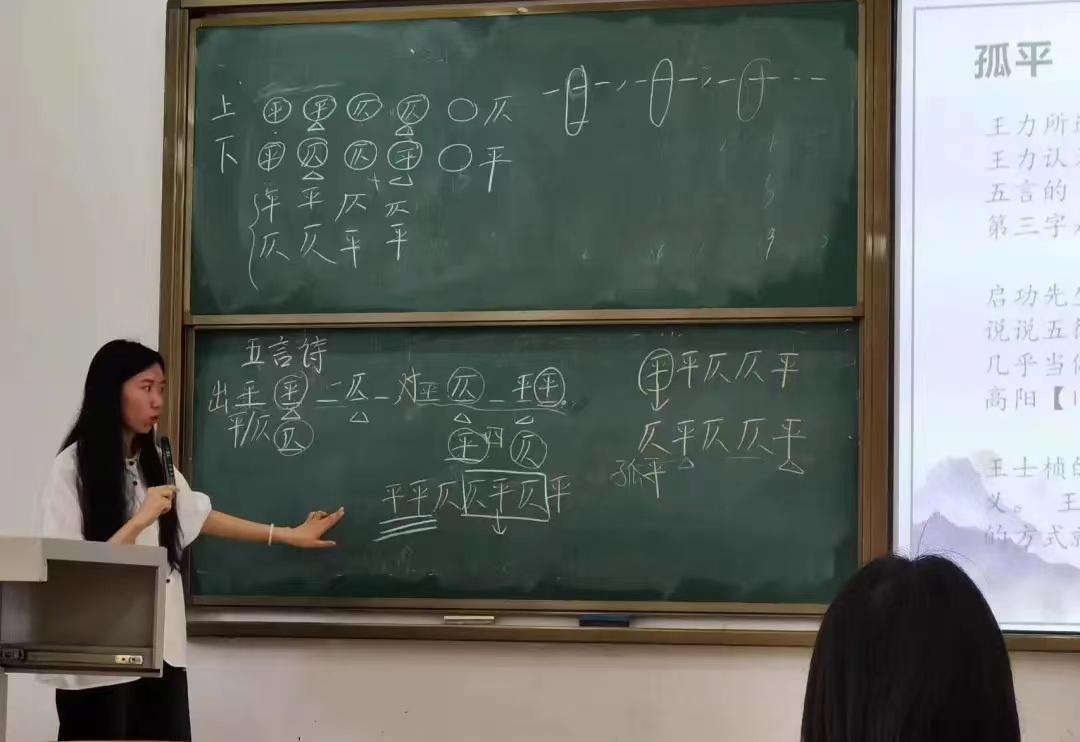 上 平 平 仄 仄 〇 仄
下 平 仄 仄 平 〇 平
平 平 仄 仄
仄 仄 平 平
五言诗
出 平 平 二 仄 一 对 平 仄 一 平 平。
平/仄 仄
平 四 仄
平平仄仄平仄平
平平仄仄平
仄平仄仄平
孤平
孤平
王力所
王力认
五言的
第三字
启功先
说说五
几乎当
高阳【
王士桢的
义。 王
的方式